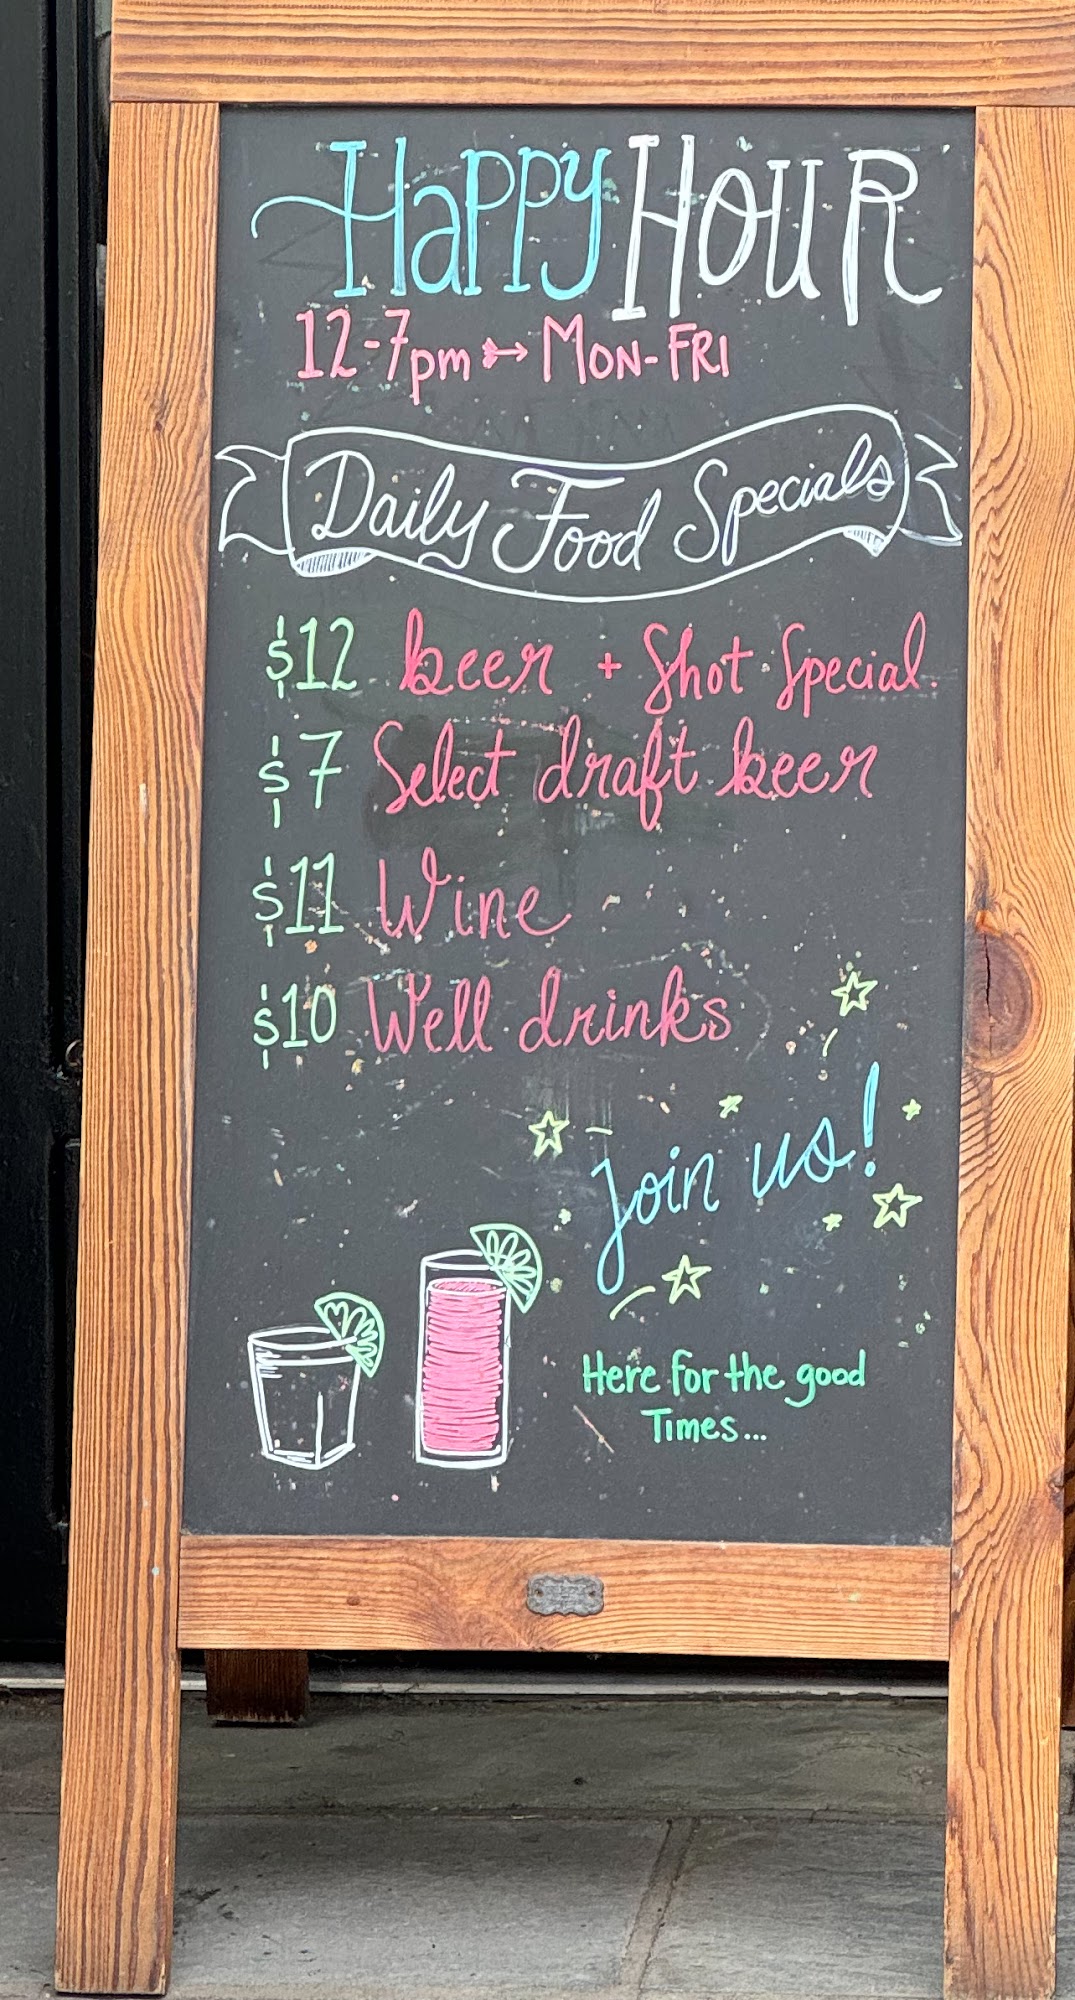 Happy Hour
12-7pm ➳ Mon-Fri
Daily Food Specials
$12 beer + Shot Special.
$7 Select draft beer
$11 Wine
$10 Well drinks
join us!
Here for the good
Times...